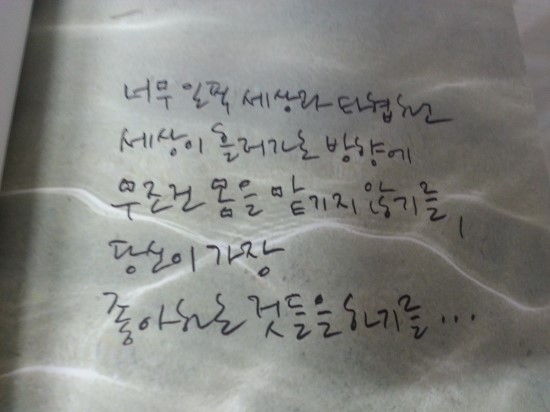 너무 일찍 세상과 타협하고
세상이 흘러가는 방향에
무조건 몸을 맡기지 않기를,
당신이 가장
좋아하는 것들을 하기를...